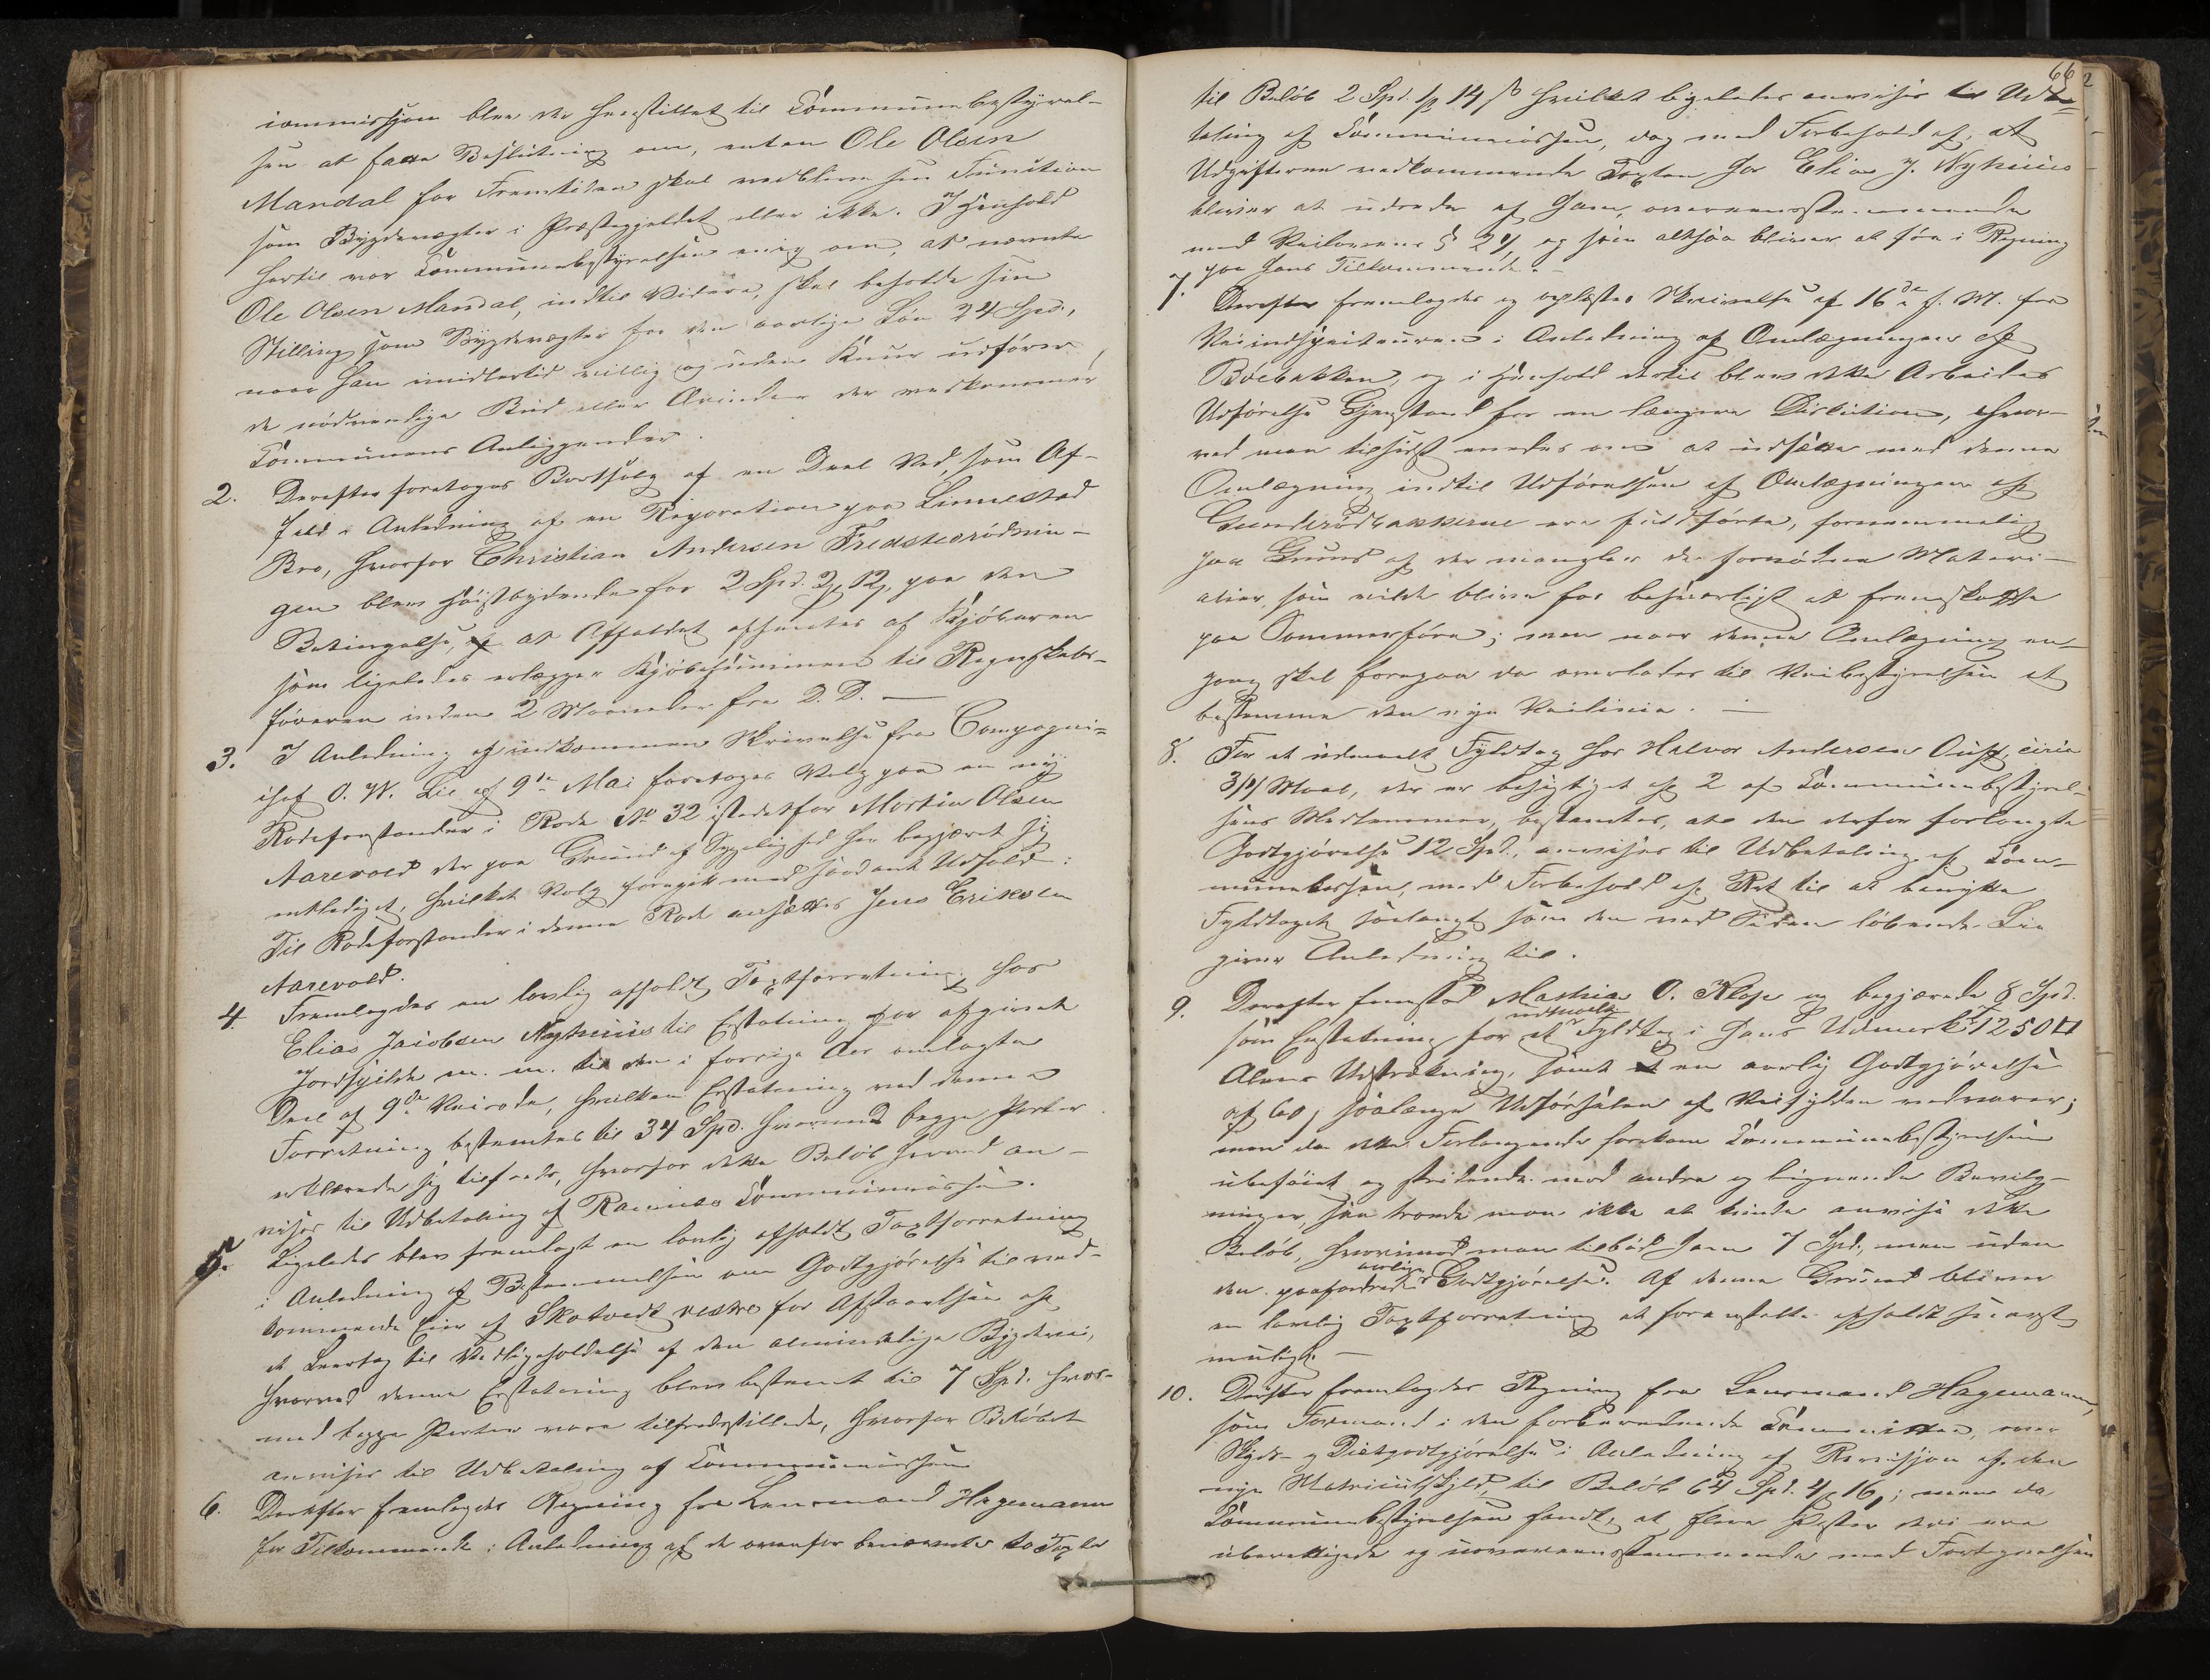 commission blev det henstillet til Communebestyrel-
sen at fatte Beslutning om, enten Ole Olsen
Mandal for Fremtiden skal vedblive sin Function
som Bygdevægter i Præstegjeldet eller ikke. I Henhold
hertil var Communebestyrelsen enig om, at nævnte
Ole Olsen Mandal, indtil Videre, skal beholde sin
Stilling som Bygdevægter for den aarlige Løn 24 Spd.,
naar han imidlertid villig og uden Knur udfører
de nødvendige Bud eller Ærinder der vedkommer
Communens Anliggender.
2. Derefter foretoges Bortsalg af en Deel Ved, som Af-
fald i Anledning af en Reparation paa Linnestad
Bro, hvorfor Christian Andersen Fredsterødnin-
gen blev høistbydende for 2 Spd. 2 12, paa den
Betingelse, at Affaldet afhentes af Kjøberen
som ligeledes erlægger Kjøbesummen til Regnskabs-
føreren inden 2 Maaneder fra D. D. —
3. I Anledning af indkommen Skrivelse fra Compagni-
chef O. W. Lie af 9de Mai foretoges Valg paa en ny
Rodeforstander i Rode No 32 istedetfor Martin Olsen
Aarevold der paa Grund af Sygelighed har begjæret sig
entlediget, hvilket Valg foregik med saadant Udfald:
Til Rodeforstander i denne Rode ansættes Jens Eriksen
Aarevold.
4. Fremlagdes en lovlig afholdt Taxtforretning hos
Elias Jacobsen Nyhuus til Erstatning for afgivet
Jordfylde m. m. til den i forrige Aar omlagte
Deel af 9de Veirode, hvilken Erstatning ved denne
Forretning bestemtes til 34 Spd. hvormed begge Parter
erklærede sig tilfreds, hvorfor dette Beløb herved an-
vises til Udbetaling af Ramnæs Communecasse.
5. Ligeledes blev fremlagt en lovlig afholdt Taxtforretning
i Anledning af Bestemmelsen om Godtgjørelse til ved-
kommende Eier af Skatvedt vestre for Afstaaelsen af
et Leertag til Vedligeholdelse af den almindelige Bygdevei,
hvorved denne Erstatning blev bestemt til 7 Spd. hvor-
med begge Parter vare tilfredsstillede, hvorfor Beløbet
anvises til Udbetaling af Communecassen
6. Derefter fremlagdes Regning fra Lensmand Hagemann
for Tilkommende i Anledning af de ovenfor benævnte to Taxter
66
til Beløb 2 Spd. 1 14 ß hvilket ligeledes anvises til Udbe-
taling af Communecassen, dog med Forbehold af, at
Udgifterne vedkommende Taxten hos Elias J. Nyhuus
bliver at udrede af ham, overeensstemmende
med Veilovens § 24 og som altsaa bliver at føre i Regning
paa hans Tilkommende. —
7. Derefter fremlagdes og oplæstes Skrivelse af 16de f. M. fra
Veiinspecteuren i Anledning af Omlægningen af
Boebakken, og i Henhold dertil blev dette Arbeides
Udførelse Gjenstand for en længere Discution, hvor-
ved man tilsidst enedes om at udsætte med denne
Omlægning indtil Udførelsen af Omlægningen af
Gunderødbakkerne ere fuldførte, fornemmelig
paa Grund af der mangler de fornødne Materi-
alier, som vilde blive for besværligt at fremskaffe
paa Sommerføre; men naar denne Omlægning en-
gang skal foregaa da overlades til Veibestyrelsen at
bestemme den nye Veilinie. —
8. For et udmaalt Fyldtag hos Halvor Andersen Aust, circa
3/4 Maal, der er besigtiget af 2 af Communebestyrel-
sens Medlemmer, bestemtes, at den derfor forlangte
Godtgjørelse 12 Spd., anvises til Udbetaling af Com-
munekassen, med Forbehold af Ret til at benytte
Fyldtaget saalangt som den ved Siden løbende
giver Anledning til.
9. Derefter fremstod Mathias O. Klop og begjærede 8 Spd.
som Erstatning for et udmaalt Fyldtag i hans Udmark 1250 □
Alens Udstrækning, samt en aarlig Godtgjørelse
af 60 saalænge Udførselen af Veifylden vedvarer;
men da dette Forlangende forekom Communebestyrelsen
ubeføiet og stridende mod andre og lignende Bevilg-
ninger, saa troede man ikke at kunde anvise dette
Beløb, hvorimod man tilbød ham 7 Spd., men uden
den paafordrede aarlige Godtgjørelse. Af denne Grund bliver
en lovlig Taxtforretning at foranstalte afholdt snarest
muligt. —
10. Derefter fremlagdes Regning fra Lensmand Hagemann,
som Formand i den forberedende Committee, over
Skyds- og Diætgodtgjørelse i Anledning af Revisjon af den
nye Matriculskyld, til Beløb 64 Spd. 4 16; men da
Communebestyrelsen fandt, at flere Poster deri ere
uberettigede og uovereensstemmende med Fortegnelsen